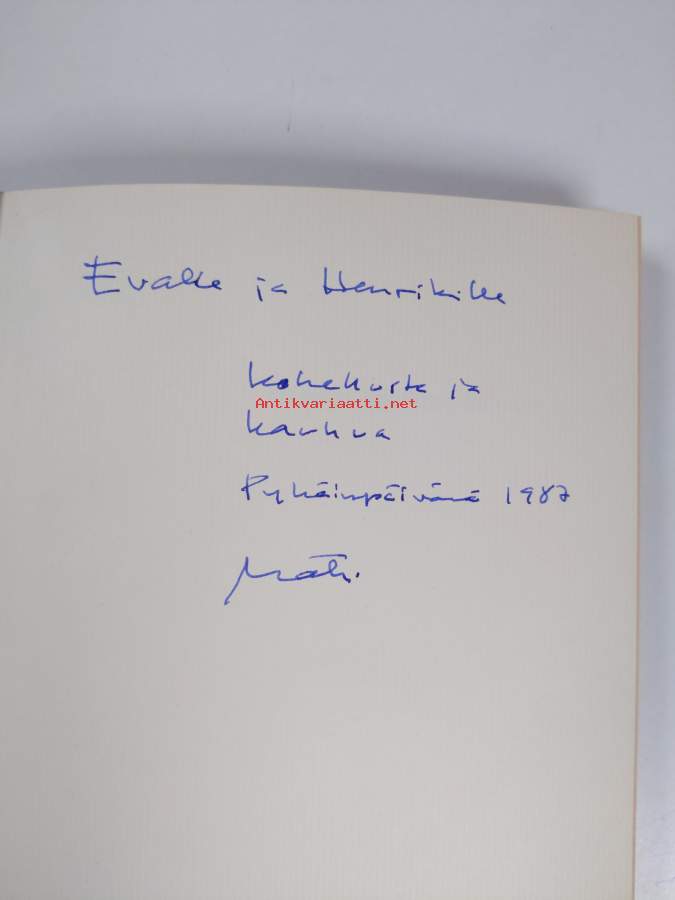 Evalle ja Henrikille
kohellusta ja
Antikvariaatti.net
kauhua
Pyhäinpäivänä 1987
Matti